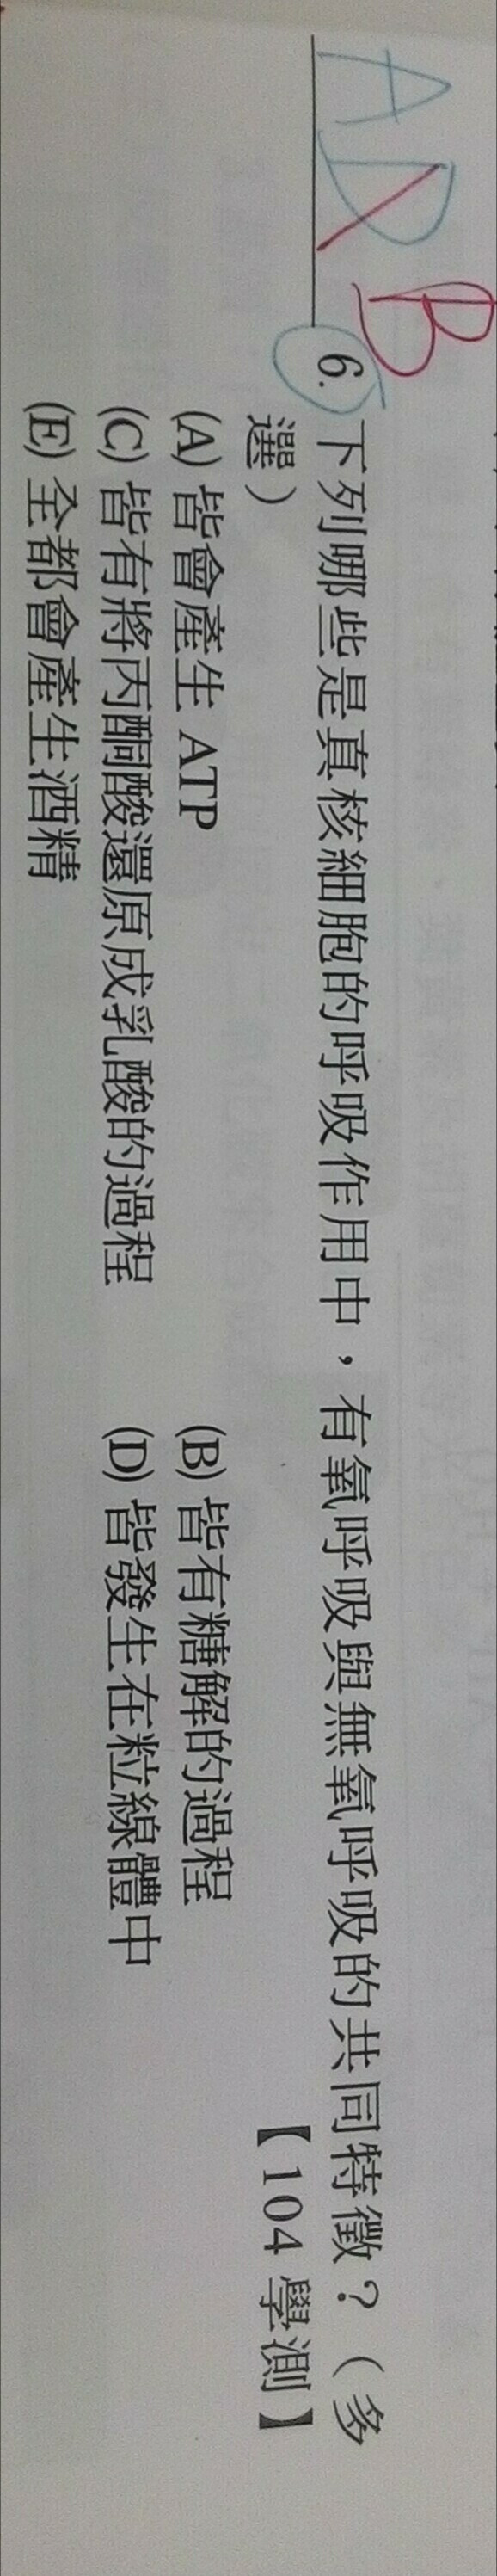 AD B
6. 下列哪些是真核細胞的呼吸作用中，有氧呼吸與無氧呼吸的共同特徵？（多
選） 【104 學測】
(A) 皆會產生 ATP (B) 皆有糖解的過程
(C) 皆有將丙酮酸還原成乳酸的過程 (D) 皆發生在粒線體中
(E) 全都會產生酒精